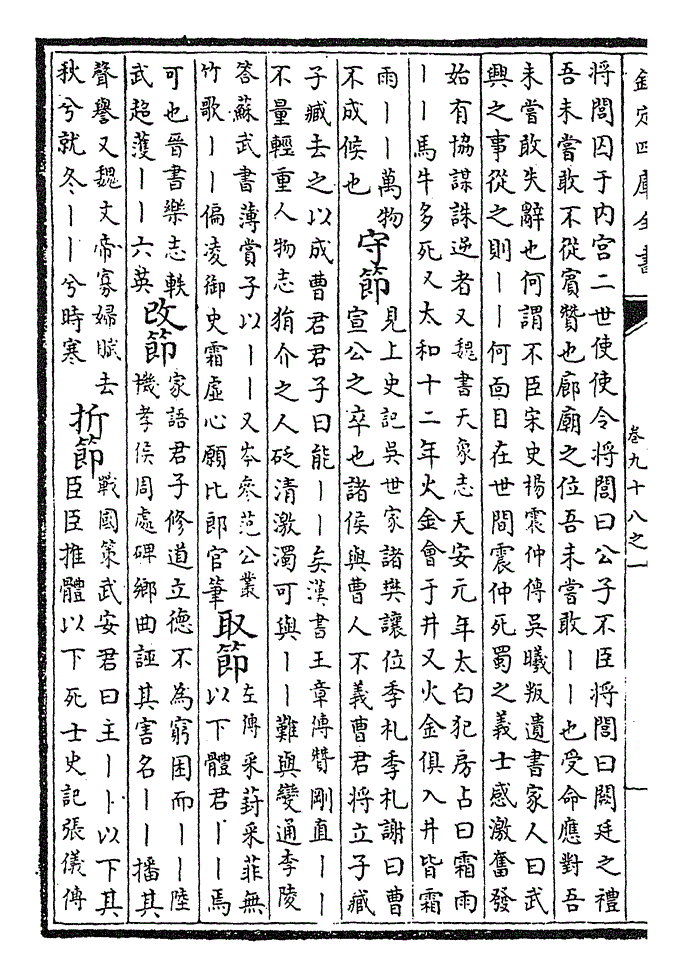 欽定四庫全書
卷九十八之一
將閭囚于内宮二世使使令將閭曰公子不臣將閭曰闕廷之禮
吾未嘗敢不從賓贊也廊廟之位吾未嘗敢丨丨也受命應對吾
未嘗敢失辭也何謂不臣宋史楊震仲傳吳曦叛遺書家人曰武
興之事從之則丨丨何面目在世間震仲死蜀之義士感激奮發
始有協謀誅逆者又魏書天象志天安元年太白犯房占曰霜雨
丨丨馬牛多死又太和十二年火金會于井又火金俱入井皆霜
雨丨丨萬物
不成候也
守節
見上史記吳世家諸樊讓位季札季札謝曰曹
宣公之卒也諸侯與曹人不義曹君將立子臧
子臧去之以成曹君君子曰能丨丨矣漢書王章傳贊剛直丨丨
不量輕重人物志狷介之人砭清激濁可與丨丨難與變通李陵
答蘇武書薄賞子以丨丨又岑參范公叢
竹歌丨丨偏凌御史霜虛心願比郎官筆
取節
左傳采葑采菲無
以下體君丨丨焉
可也晉書樂志軼
武超濩丨丨六英
改節
家語君子修道立德不為窮困而丨丨陸
機孝侯周處碑鄉曲誣其害名丨丨播其
聲譽又魏文帝寡婦賦去
秋兮就冬丨丨兮時寒
折節
戰國策武安君曰主丨丨以下其
臣臣推體以下死士史記張儀傳